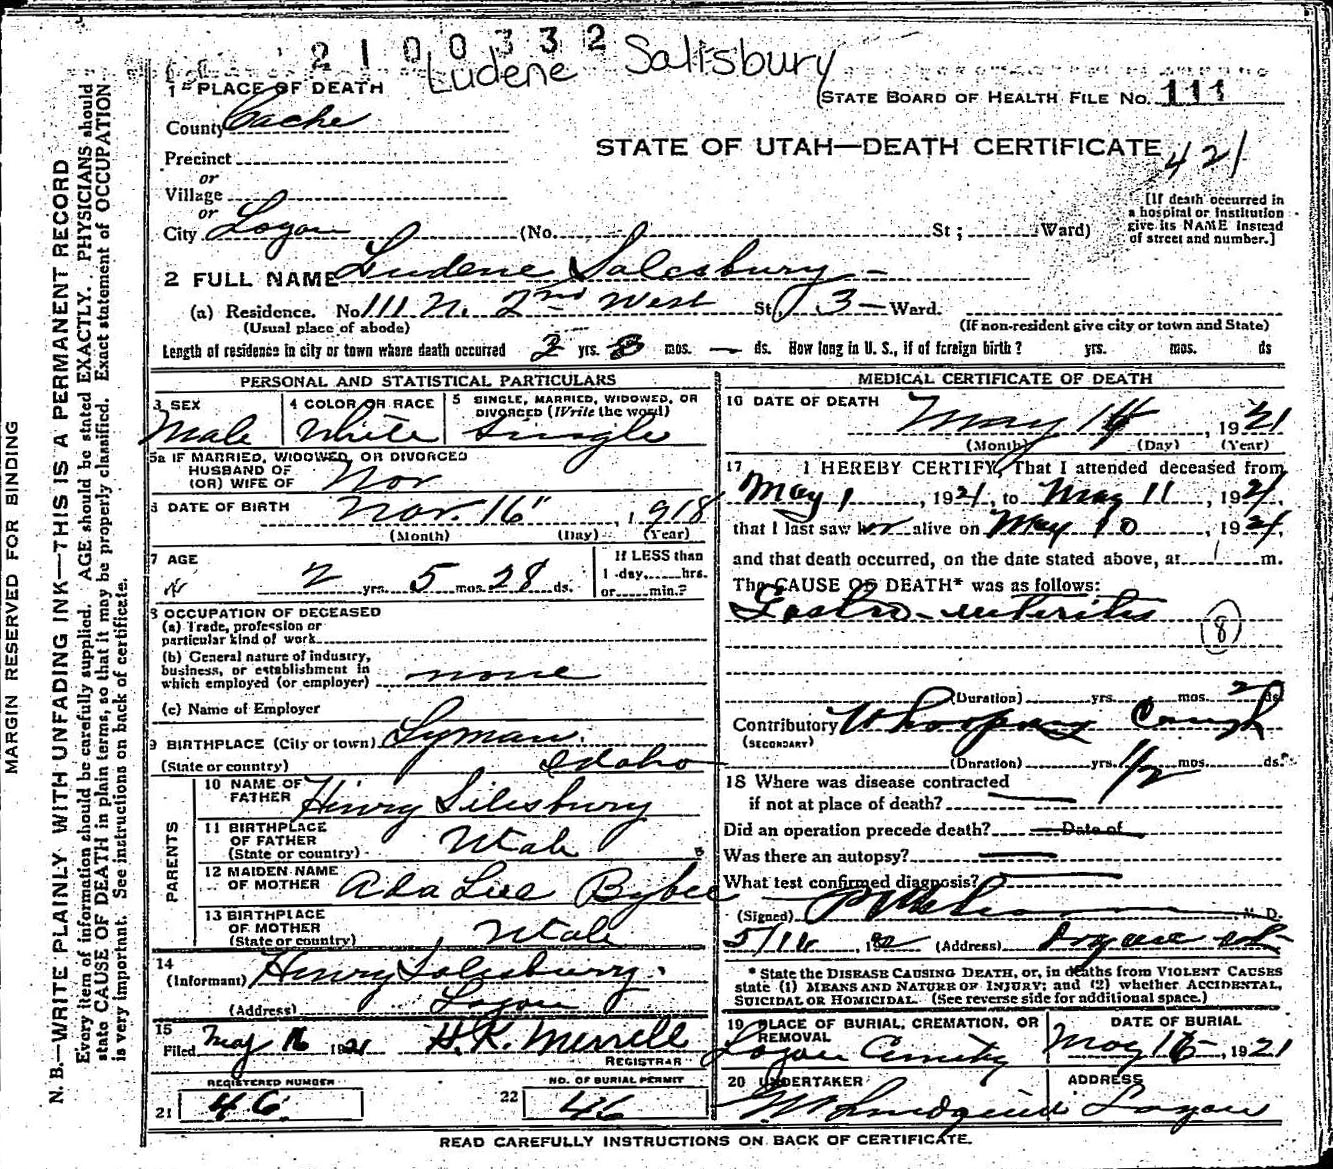 2100332
Ludene Salisbury
1 PLACE OF DEATH
STATE BOARD OF HEALTH FILE No. 111
County Cache
STATE OF UTAH—DEATH CERTIFICATE
421
Precinct
or
Village
or
City Logan (No. St; Ward)
[If death occurred in
a hospital or institution
give its NAME instead
of street and number.]
2 FULL NAME Ludene Salesbury
(a) Residence. No. 111 N. 2nd West St. 3 Ward.
(Usual place of abode) (If non-resident give city or town and State)
Length of residence in city or town where death occurred 2 yrs. 8 mos. — ds. How long in U. S., if of foreign birth? yrs. mos. ds
PERSONAL AND STATISTICAL PARTICULARS
3 SEX 4 COLOR OR RACE 5 SINGLE, MARRIED, WIDOWED, OR
DIVORCED (Write the word)
Male White Single
5a IF MARRIED, WIDOWED, OR DIVORCED
HUSBAND OF
(OR) WIFE OF
6 DATE OF BIRTH Nov. 16" 1918
(Month) (Day) (Year)
7 AGE 2 yrs. 5 mos. 28 ds.
If LESS than
1 day,......hrs.
or......min.?
8 OCCUPATION OF DECEASED
(a) Trade, profession or
particular kind of work
(b) General nature of industry,
business, or establishment in
which employed (or employer) none
(c) Name of Employer
9 BIRTHPLACE (City or town) Lyman.
(State or country) Idaho
PARENTS
10 NAME OF
FATHER Henry Silesbury
11 BIRTHPLACE
OF FATHER
(State or country) Utah
12 MAIDEN NAME
OF MOTHER Ada Lue Bybee
13 BIRTHPLACE
OF MOTHER
(State or country) Utah
14
(Informant) Henry Salesbury.
(Address) Logan
15
Filed May 16 1921 H. K. Merrell
REGISTRAR
REGISTERED NUMBER
21 46
NO. OF BURIAL PERMIT
22 46
MEDICAL CERTIFICATE OF DEATH
16 DATE OF DEATH
May 14, 1921
(Month) (Day) (Year)
17 I HEREBY CERTIFY, That I attended deceased from
May 1, 1921, to May 11, 1921,
that I last saw her alive on May 10, 1921,
and that death occurred, on the date stated above, at m.
The CAUSE OF DEATH* was as follows:
Gastro-enteritis
(8)
(Duration) yrs. mos. 2 ds.
Contributory Whooping Cough
(SECONDARY)
(Duration) yrs. 1/2 mos. ds.
18 Where was disease contracted
if not at place of death?
Did an operation precede death? Date of
Was there an autopsy?
What test confirmed diagnosis?
(Signed) M. D.
(Address) Logan Utah
* State the DISEASE CAUSING DEATH, or, in deaths from VIOLENT CAUSES
state (1) MEANS AND NATURE OF INJURY; and (2) whether ACCIDENTAL,
SUICIDAL OR HOMICIDAL. (See reverse side for additional space.)
19 PLACE OF BURIAL, CREMATION, OR
REMOVAL
Logan Cemetery
DATE OF BURIAL
May 16, 1921
20 UNDERTAKER
ADDRESS
Logan
READ CAREFULLY INSTRUCTIONS ON BACK OF CERTIFICATE.
MARGIN RESERVED FOR BINDING
N. B.—WRITE PLAINLY WITH UNFADING INK—THIS IS A PERMANENT RECORD
Every item of information should be carefully supplied. AGE should be stated EXACTLY. PHYSICIANS should
state CAUSE OF DEATH in plain terms, so that it may be properly classified. Exact statement of OCCUPATION
is very important. See instructions on back of certificate.